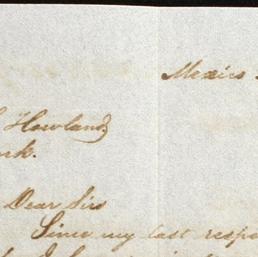 Mexico
Howland
ork.
Dear Sirs
Since my last respe